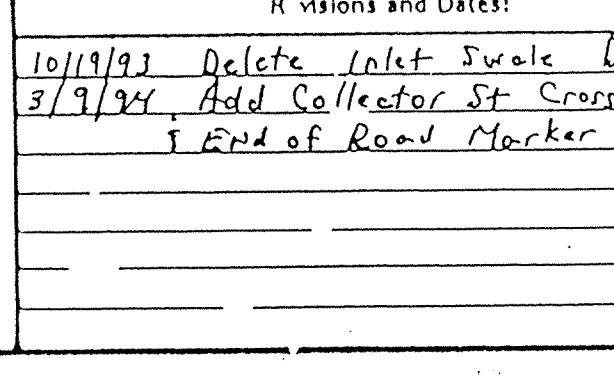 Revisions and Dates:
10/19/93 Delete Inlet Swale
3/9/94 Add Collector St Cross
& End of Road Marker